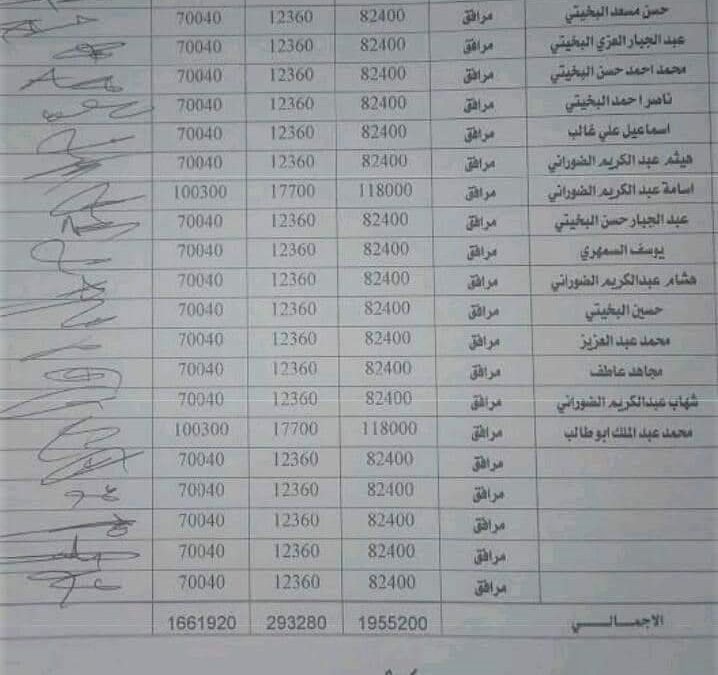 حسن مسعد البخيتي مرافق 82400 12360 70040
عبد الجبار العزي البخيتي مرافق 82400 12360 70040
محمد احمد حسن البخيتي مرافق 82400 12360 70040
ناصر احمد البخيتي مرافق 82400 12360 70040
اسماعيل علي غالب مرافق 82400 12360 70040
هيثم عبد الكريم الضوراني مرافق 82400 12360 70040
اسامة عبد الكريم الضوراني مرافق 118000 17700 100300
عبد الجبار حسن البخيتي مرافق 82400 12360 70040
يوسف السمهري مرافق 82400 12360 70040
هشام عبدالكريم الضوراني مرافق 82400 12360 70040
حسين البخيتي مرافق 82400 12360 70040
محمد عبد العزيز مرافق 82400 12360 70040
مجاهد عاطف مرافق 82400 12360 70040
شهاب عبدالكريم الضوراني مرافق 82400 12360 70040
محمد عبد الملك ابو طالب مرافق 118000 17700 100300
مرافق 82400 12360 70040
مرافق 82400 12360 70040
مرافق 82400 12360 70040
مرافق 82400 12360 70040
مرافق 82400 12360 70040
الاجمالـــــي 1955200 293280 1661920